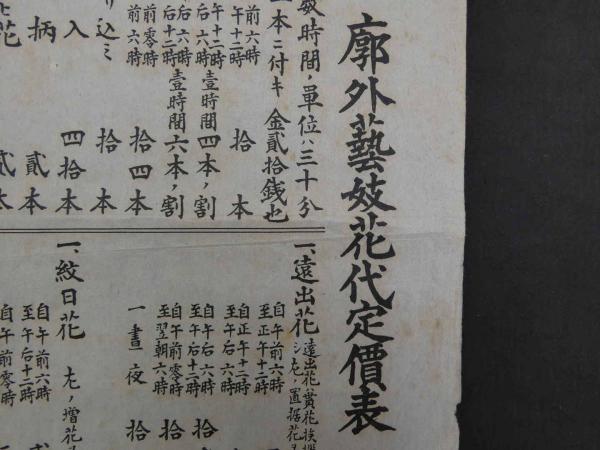 廓外藝妓花代定價表
時間ノ單位ハ三十分
一本ニ付キ 金貳拾銭也
前六時
午十二時 拾本
午十二時
后六時 壹時間四本ノ割
后六時
后十二時 壹時間六本ノ割
后十二時
前零時
前六時 拾四本
込ミ 拾本
入 四拾本
柄 貳本
花 貳本
一、遠出花
自午前六時
至正午十二時
自正午十二時
至午后六時
自午后六時
至午后十二時 拾
自午前零時
至翌朝六時 拾
一晝夜 拾
一、紋日花 左ノ增花
自午前六時
至午后十二時
自午前零時